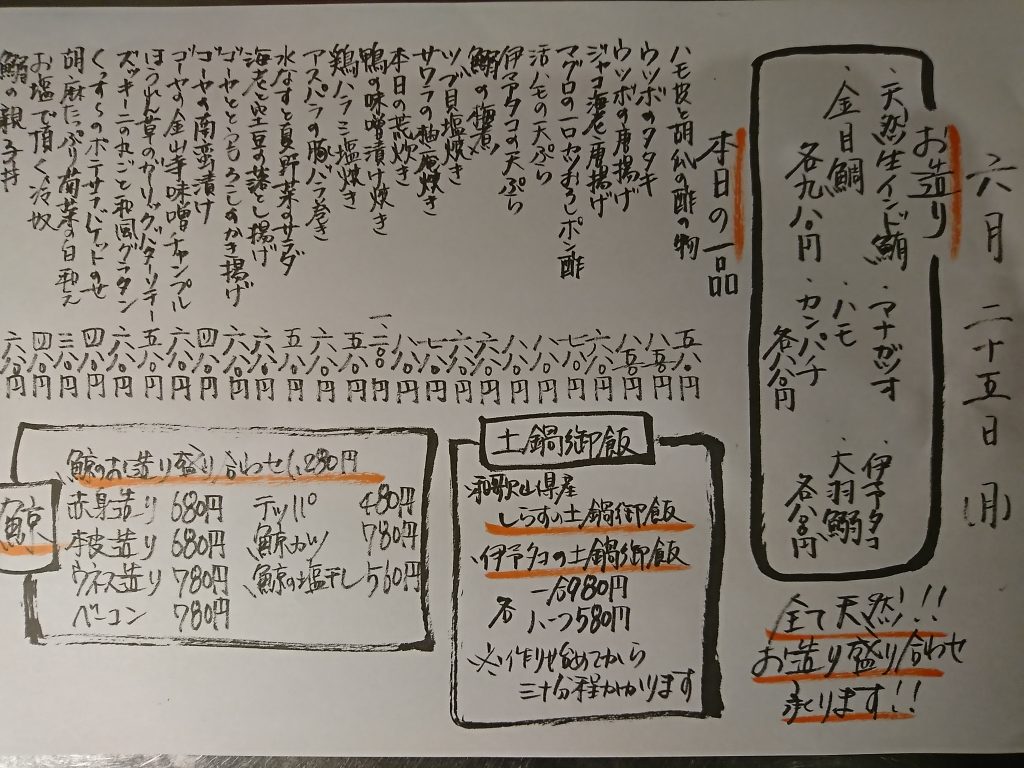 六月 二十五日(月)
お造り
・天然生インド鮪
・金目鯛
各九八〇円
・マナガツオ
・ハモ
・カンパチ
各八八〇円
・伊予タコ
・大羽鰯
全て天然!!
お造り盛り合わせ
承ります!!
本日の一品
ハモ皮と胡瓜の酢の物 五八〇円
ウツボのタタキ 八五〇円
ウツボの唐揚げ 八五〇円
ジャコ海老唐揚げ 六八〇円
マグロの一口カツおろしポン酢 七八〇円
活ハモの天ぷら 八八〇円
伊予タコの天ぷら 八八〇円
鰯の梅煮 六八〇円
ツブ貝塩焼き 六八〇円
サワラの柚庵焼き 七八〇円
本日の荒炊き 八八〇円
鴨の味噌漬け焼き 一、二〇〇円
鶏ハラミ塩焼き 五八〇円
アスパラの豚バラ巻き 六八〇円
水なすと夏野菜のサラダ 五八〇円
海老と空豆の落とし揚げ 六八〇円
ゴーヤととうもろこしのかき揚げ 六八〇円
ゴーヤの南蛮漬け 四八〇円
ゴーヤの金山寺味噌チャンプル 六八〇円
ほうれん草のガリックバターソテー 五八〇円
ズッキーニの丸ごと和風グラタン 六八〇円
ポテサラバケットのせ 四八〇円
胡麻たっぷり菊菜の白和え 三八〇円
お塩で頂く冷奴 四八〇円
鰯の親子丼 六八〇円
土鍋御飯
・和歌山県産
しらすの土鍋御飯
・伊予タコの土鍋御飯
各 一合980円
ハーフ580円
※作り始めてから
三十分程かかります
鯨
・鯨のお造り盛り合わせ1,280円
赤身造り 680円
本皮造り 680円
ウネス造り 780円
ベーコン 780円
テッパ 480円
鯨カツ 780円
鯨の塩干し 560円